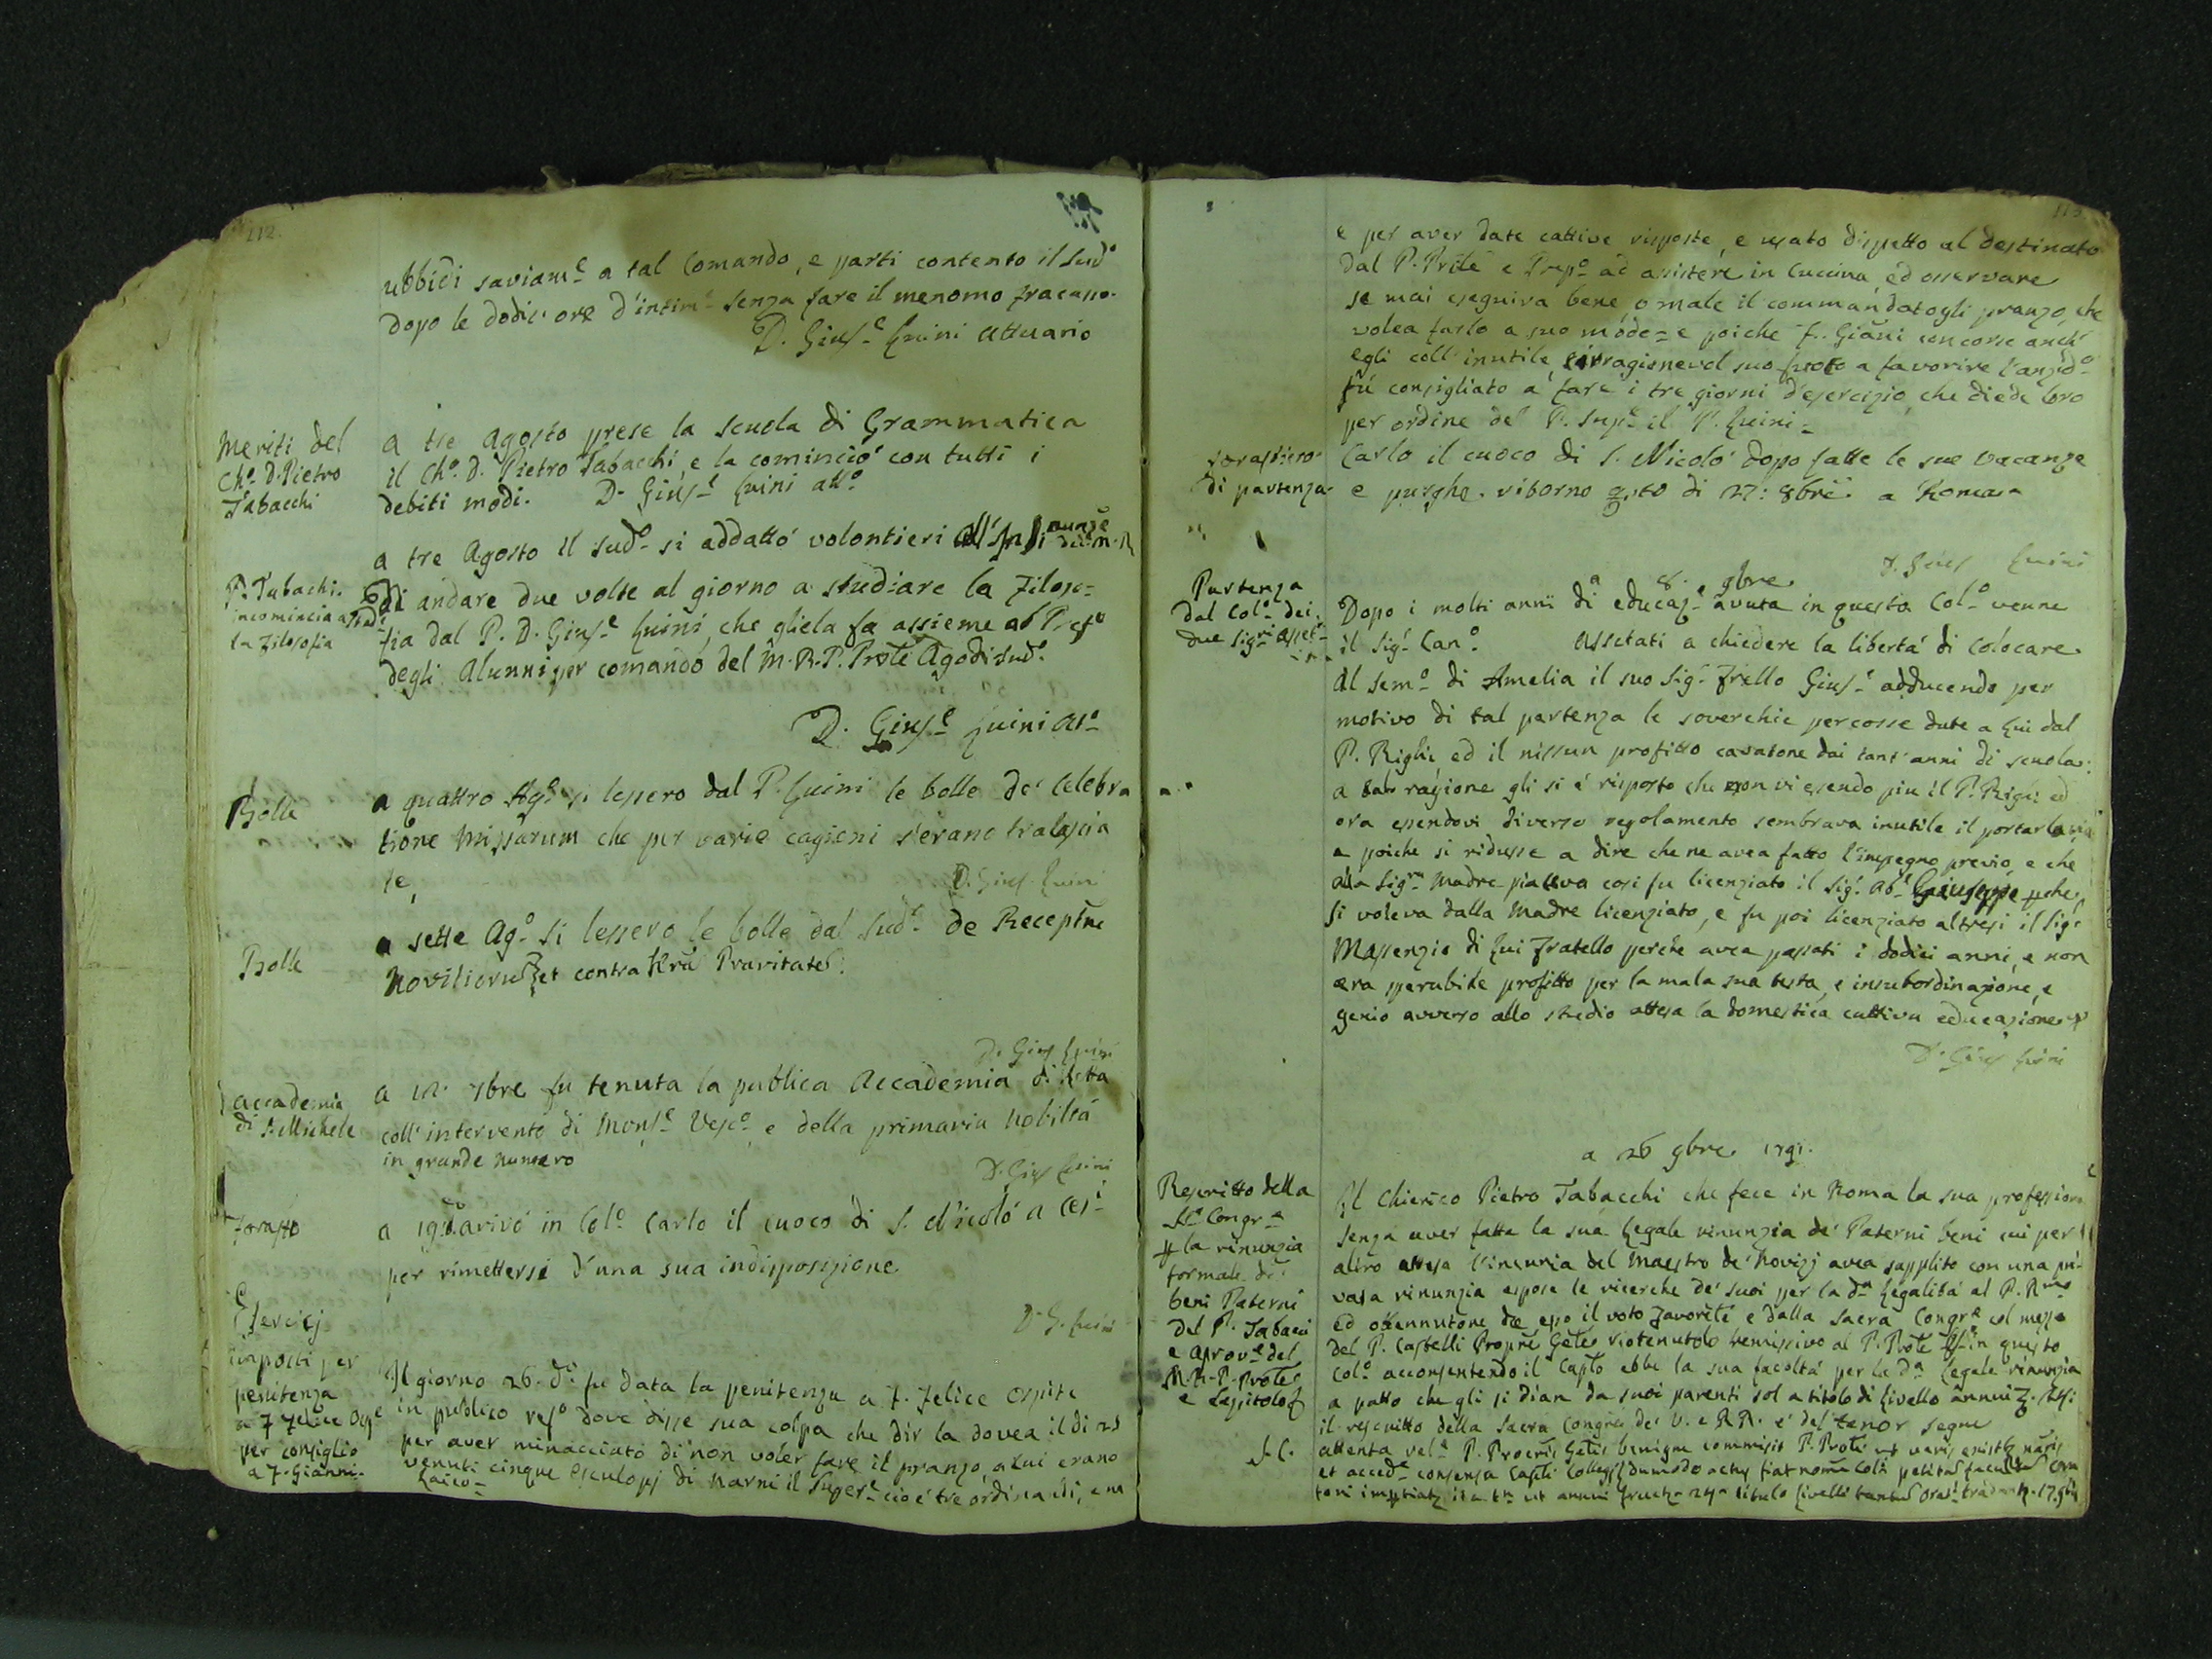 112.
ubbidi saviam.e a tal Comando, e parti contento il Sud.o
dopo le dodici ore d'intim.e senza fare il menomo fracasso.
D. Gius.e Luini Attuario
Meriti del
Ch.o D. Pietro
Tabacchi
a tre Agosto prese la scuola di Grammatica
il Ch.o D. Pietro Tabacchi, e la cominciò con tutti i
debiti modi. D. Gius.e Luini att.o
a tre Agosto il sud.o si addattò volontieri
P. Tabachi.
incomincia a stud.e
la Filosofia
di andare due volte al giorno a studiare la Filoso=
fia dal P. D. Gius.e Luini, che gliela fa assieme al
degli Alunni per comando del M. R. P. Prõte Ago di sud.o
D. Gius.e Luini At.o
Bolle
a quattro Ag.o si lessero dal P. Luini le bolle de Celebra
tione Missarum che per varie cagioni s'erano tralascia
te,
D. Gius. Luini
Bolle
a sette Ag.o si lessero le bolle dal Sud.o de Receptne
Novitiorum et contra Pravitate.
D. Gius Luini
accademia
di S. Michele
a 7bre fu tenuta la publica Accademia di detta
coll' intervento di Mons.e Vesc.o e della primaria Nobiltà
in grande numero
D. Gius Luini
a 19 d. arivò in Col.o Carlo il cuoco di S. Nicolò a Ces.i
per rimettersi d'una sua indisposizione
D. G. Luini
Esercizj
imposti per
penitenza
a F Felice Ospe
per consiglio
a F. Gianni.
Laico=
Il giorno 26. d.o fu data la penitenza a F. Felice Ospite
in publico ref.o dove disse sua colpa che dir la dovea il di 25
per aver minacciato di non voler fare il pranzo, a lui erano
venuti cinque Esculopj di Narni il Super.e cioè tre ordinarj, e un
113.
e per aver date cattive risposte, e usato dispetto al destinato
dal P. Prõte e Prep.o ad asistere in Cucina, ed osservare
se mai eseguiva bene, o male il commandatogli pranzo, che
volea farlo a suo modo= e poiche F. Giãni concorse anch'
egli coll' inutile, irragionevol suo a favorire l'anzid.o
fù consigliato a fare i tre giorni d'esercizio, che diede loro
per ordine del P. Sup.e il P. Luini=
forastiero
di partenza
Carlo il cuoco di S. Nicolò dopo fatte le sue vacanze
e purghe. ritorno di 27: 8bre a Roma
D. Gius Luini
8. 9bre
Partenza
dal Col.o dei
due Sig.ri Asset.i
Dopo i molti anni di educaz.e avuta in questo Col.o venne
il Sig.r Can.o Assetati a chiedere la libertà di colocare
al Sem.o di Amelia il suo Sig.r Frello Gius.e adducendo per
motivo di tal partenza le soverchie percosse date a lui dal
P. Righi ed il nissun profitto cavatone dai tant'anni di scuola:
a tal ragione gli si è risposto che non vi essendo piu il P. Righi ed
ora essendovi diverso regolamento sembrava inutile il portarlo via
e poiche si ridusse a dire che ne avea fatto l'impegno previo, e che
alla Sig.ra Madre piaceva cosi fu licenziato il Sig.r Ab.e Giuseppe
si voleva dalla Madre licenziato, e fu poi licenziato altresi il Sig.r
Massenzio di lui Fratello perche avea passati i dodici anni, e non
era sperabile profitto per la mala sua testa, e insubordinazione, e
genio avverso allo studio attesa la domestica cattiva educazione
D. Gius Luini
a 26 9bre 1791.
Rescritto della
S.a Congr.e
la rinunzia
formale de'
beni Paterni
del P. Tabacci
e aprov.e del
M. R. P. Prõte
e Capitolo
Il Chierico Pietro Tabacchi che fece in Roma la sua professione
senza aver fatta la sua legale rinunzia de' Paterni beni cui per
altro attesa l'incuria del Maestro de' Novizj avea supplito con una pri
vata rinunzia espose le ricerche de' suoi per la d.a legalità al P. R.mo
ed ottennutone da esso il voto Favorite e dalla Sacra Congr.e col mezzo
del P. Castelli Propre Gẽle remissivo al P. Prõte in questo
Col.o acconsentendo il Caplo ebbe la sua facoltà per la d.a legale rinunzia
a patto che gli si dian da suoi parenti sol a titolo di livello annui
il rescritto della Sacra Congre de' V. e RR. è del tenor segue
attenta rel.e P. Procris Gelis benigne commisit P. Prõti
et acced.e consensu Capli Collegij dummodo actus fiat